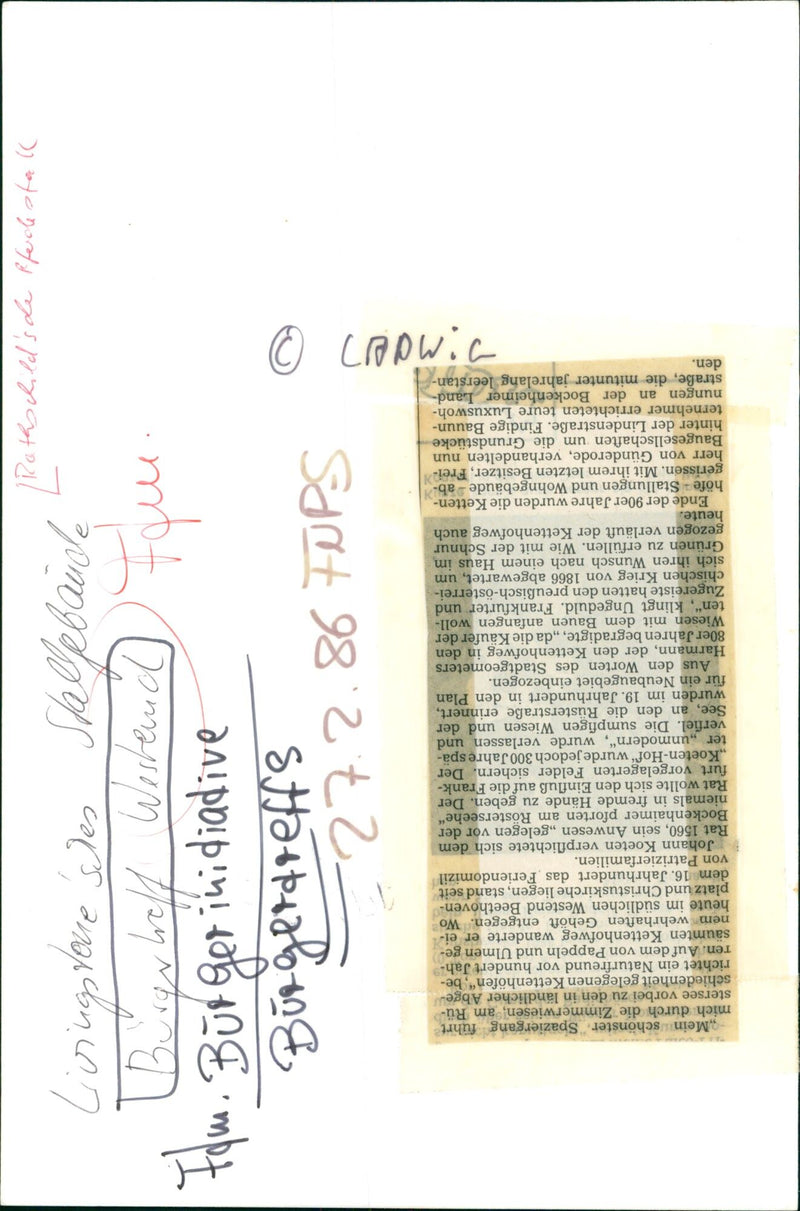 [Rothschild'sche Pferdestall
Livingstone'sches Stallgebäude
Bürgertreff Westend
Ffm.
Ffm. Bürgerinidiadive
Bürgerdreffs
27.2.86 FNPS
© LADWiG
„Mein schönster Spaziergang führt
mich durch die Zimmerwiesen, am Rü-
stersee vorbei zu den in ländlicher Abge-
schiedenheit gelegenen Kettenhöfen“, be-
richtet ein Naturfreund vor hundert Jah-
ren. Auf dem von Pappeln und Ulmen ge-
säumten Kettenhofweg wanderte er ei-
nem wehrhaften Gehöft entgegen. Wo
heute im südlichen Westend Beethoven-
platz und Christuskirche liegen, stand seit
dem 16. Jahrhundert das Feriendomizil
von Patrizierfamilien.
Johann Koeten verpflichtete sich dem
Rat 1560, sein Anwesen „gelegen vor der
Bockenhaimer pforten am Röstersehe“
niemals in fremde Hände zu geben. Der
Rat wollte sich den Einfluß auf die Frank-
furt vorgelagerten Felder sichern. Der
„Koeten-Hof“ wurde jedoch 300 Jahre spä-
ter „unmodern“, wurde verlassen und
verfiel. Die sumpfigen Wiesen und der
See, an den die Rüsterstraße erinnert,
wurden im 19. Jahrhundert in den Plan
für ein Neubaugebiet einbezogen.
Aus den Worten des Stadtgeometers
Harmann, der den Kettenhofweg in den
80er Jahren begradigte, „da die Käufer der
Wiesen mit dem Bauen anfangen woll-
ten“, klingt Ungeduld. Frankfurter und
Zugereiste hatten den preußisch-österrei-
chischen Krieg von 1866 abgewartet, um
sich ihren Wunsch nach einem Haus im
Grünen zu erfüllen. Wie mit der Schnur
gezogen verläuft der Kettenhofweg auch
heute.
Ende der 90er Jahre wurden die Ketten-
höfe – Stallungen und Wohngebäude – ab-
gerissen. Mit ihrem letzten Besitzer, Frei-
herr von Günderode, verhandelten nun
Baugesellschaften um die Grundstücke
hinter der Lindenstraße. Findige Bauun-
ternehmer errichteten teure Luxuswoh-
nungen an der Bockenheimer Land-
straße, die mitunter jahrelang leerstan-
den.